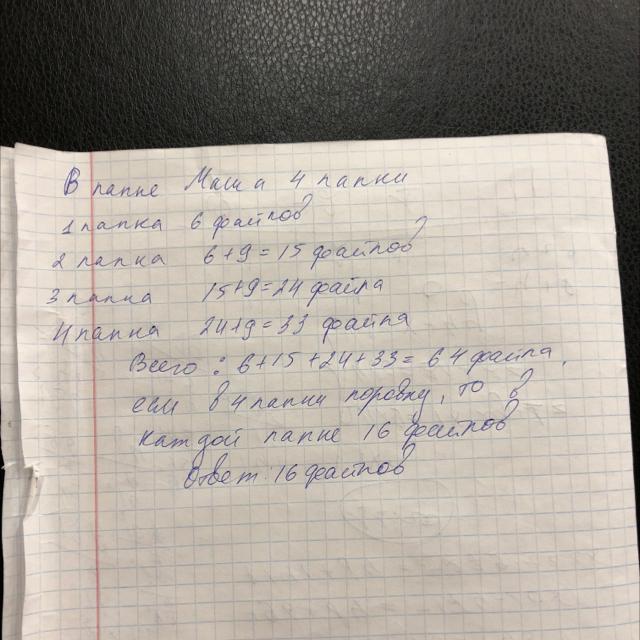 В папке Маша 4 папки
1 папка 6 файлов
2 папка 6+9=15 файлов
3 папка 15+9=24 файла
4 папка 24+9=33 файла
Всего: 6+15+24+33=64 файла,
если в 4 папки поровну, то в
каждой папке 16 файлов
Ответ: 16 файлов